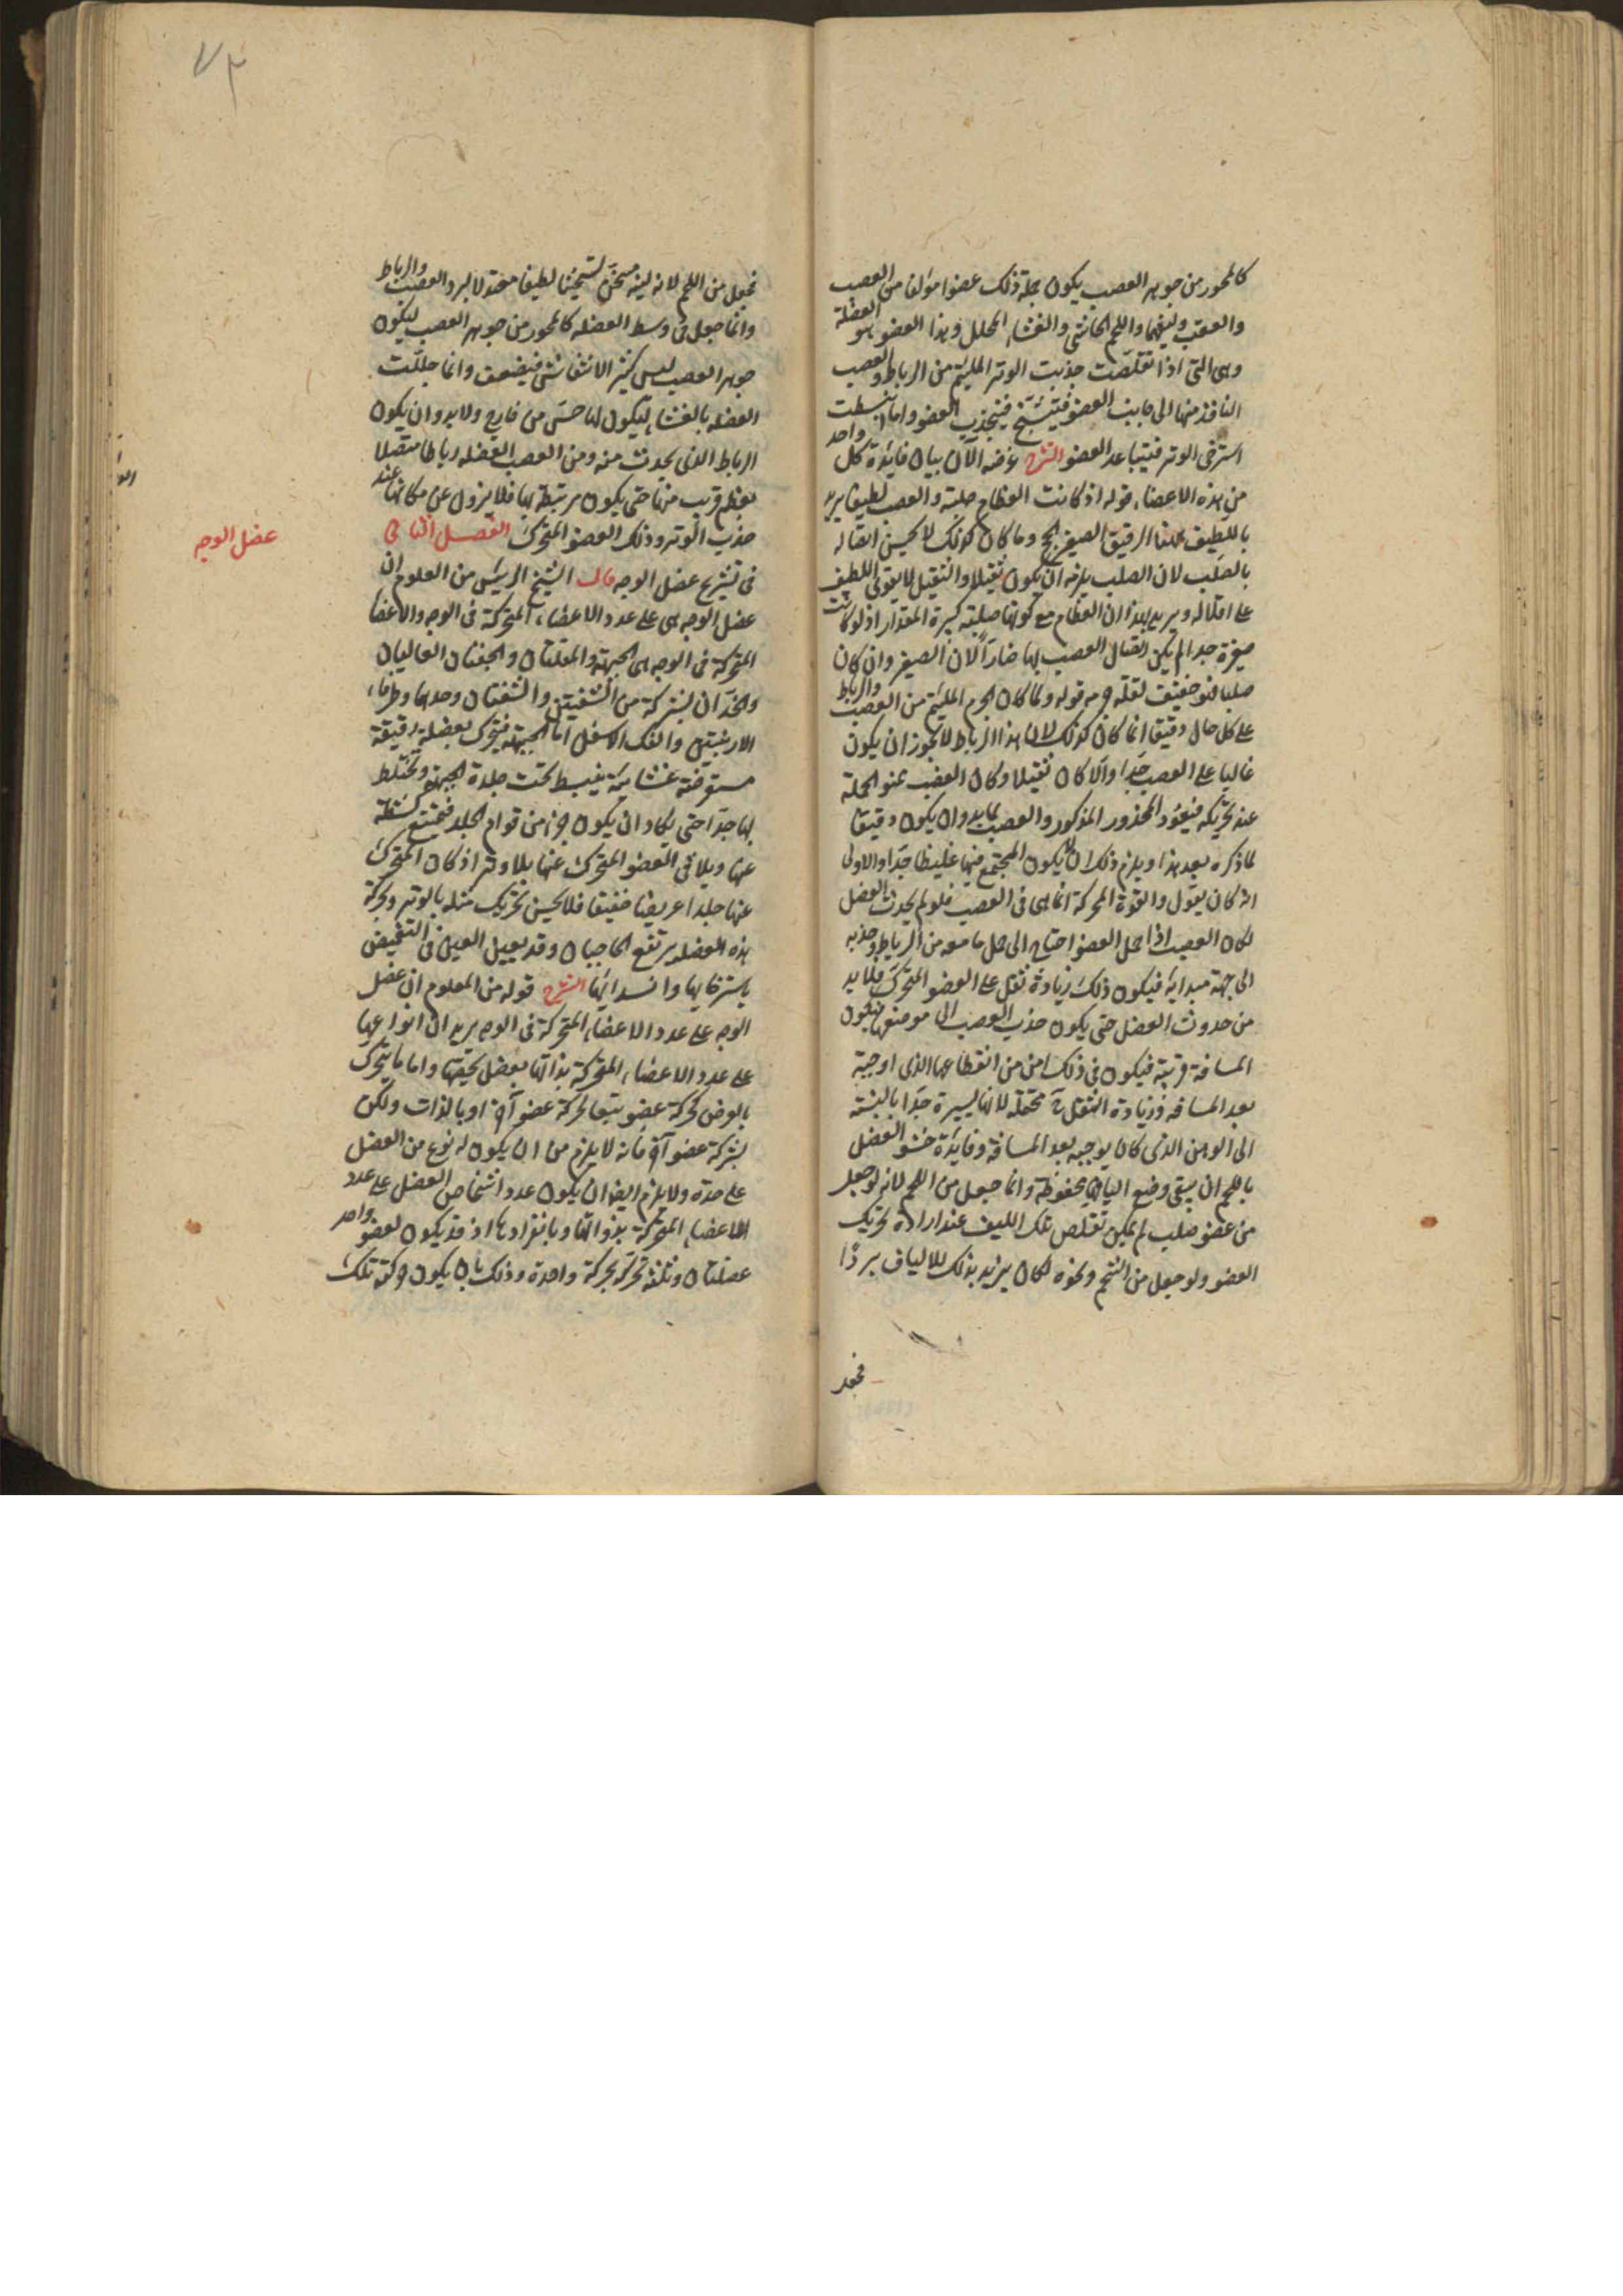 كالمحور من جوهر العصب يكون جملة ذلك عضوا مولفا من العصب
والعقب وليفهما واللحم الحاشى والغشاء المجلل وهذا العضو هو العضلة
وهى التى اذا تقلصت جذبت الوتر الملتئم من الرباط والعصب
النافذ منها الى جانب العضو فيتشنج فينجذب العضو واذا انبسطت
استرخى الوتر فيتباعد العضو الشرح غرضه الآن بيان فايدة كل واحد
من هذه الاعضاء قوله اذ كانت العظام صلبة والعصب لطيفا يريد
باللطيف ههنا الرقيق الصغير الحجم وما كان كذلك لا يحسن اتصاله
بالصلب لان الصلب يلزمه ان يكون ثقيلا والثقيل لا يقوى اللطيف
على اقلاله ويريد بهذا ان العظام مع كونها صلبة كبيرة المقدار اذ لو كانت
صغيرة جدا لم يكن اتصال العصب بها ضارا لان الصغير وان كان
صلبا فهو خفيف لقلة جرمه قوله ولما كان الجرم الملتئم من العصب والرباط
على كل حال دقيقا انما كان كذلك لان هذا الرباط لا يجوز ان يكون
غالبا على العصب جدا والا كان ثقيلا وكان العصب يمنو بحمله
عند تحريكه فيعود المحذور المذكور والعصب لا بد وان يكون دقيقا
لما ذكره بعد هذا ويلزم ذلك ان لا يكون المجتمع منهما غليظا جدا والاولى
انه كان يقول والقوة المحركة انما هى فى العصب فلو لم يحدث العضل
لكان العصب اذا حل العضو احتاج الى حمل ما معه من الرباط وجذبه
الى جهة مبدايه فيكون ذلك زيادة ثقل على العضو المتحرك فلا بد
من حدوث العضل حتى يكون جذب العصب الى موضعها فيكون
المسافة قريبة فيكون فى ذلك امن من انقطاعها الذى اوجبه
بعد المسافه وزيادة الثقل محتملة لانها يسيرة جدا بالنسبة
الى الوهن الذى كان يوجبه بعد المسافة وفايدة حشو العضل
باللحم ان يبقى وضع اليافها محفوظة وانما جعل من اللحم لانه لو جعل
من عضو صلب لم يمكن تقلص تلك الليف عند ارادة تحريك
العضو ولو جعل من الشحم ونحوه لكان يزيد بذلك للالياف بردا
فجعل
٧٣
فجعل من اللحم لانه لينه مسخن تسخينا لطيفا معتدلا لبرد العصب والرباط
وانما جعل فى وسط العضله كالمحور من جوهر العصب ليكون
جوهر العصب ليس كثير الانتفاش فيضعف وانما جللت
العضله بالغشاء ليكون لها حس من خارج ولابد وان يكون
الرباط الذى يحدث منه ومن العصب العضله رباطا متصلا
بعظم قريب منها حتى يكون مرتبطة بها فلا يزول عن مكانها عند
جذب الوتر وذلك العضو المتحرك الفصل الثانى
فى تشريح عضل الوجه قال الشيخ الرييس من العلوم ان
عضل الوجه هى على عدد الاعضاء المتحركة فى الوجه والاعضا
المتحركة فى الوجه هى الجبهة والمقلتان والجفنان العاليان
والخد ان بشركة من الشفتين والشفتان وحدها وطرفا
الارنبتين والفك الاسفل اما الجبهة فتتحرك بعضلة دقيقة
مستعرضة غشائية ينبسط تحت جلدة الجبهة وتختلط
بها جدا حتى يكاد ان يكون جزءا من قوام الجلد فيمتنع كشطه
عنها ويلاقى العضو المتحرك عنها بلا وتر اذ كان المتحرك
عنها جلدا عريضا خفيفا فلا يحسن تحريك مثله بالوتر وبحركة
هذه العضله يرتفع الحاجبان وقد يعين العين فى التغميض
باسترخايها وانسدالها الشرح قوله من المعلوم ان عضل
الوجه على عدد الاعضاء المتحركة فى الوجه يريد ان انواعها
على عدد الاعضاء المتحركة بذاتها بعضل يخصها واما ما يتحرك
بالعرض كحركة عضو يتبع لحركة عضو آخر او بالذات ولكن
بشركة عضو آخر فانه لا يلزم من ان يكون له نوع من العضل
على حدة ولا يلزم ايضا ان يكون عدد اشخاص العضل على عدد
الاعضاء المتحركة بذواتها وبانفرادها اذ قد يكون لعضو واحد
عضلتان وثلثه تحركه بحركة واحدة وذلك بان يكون حركة تلك
عضل الوجه